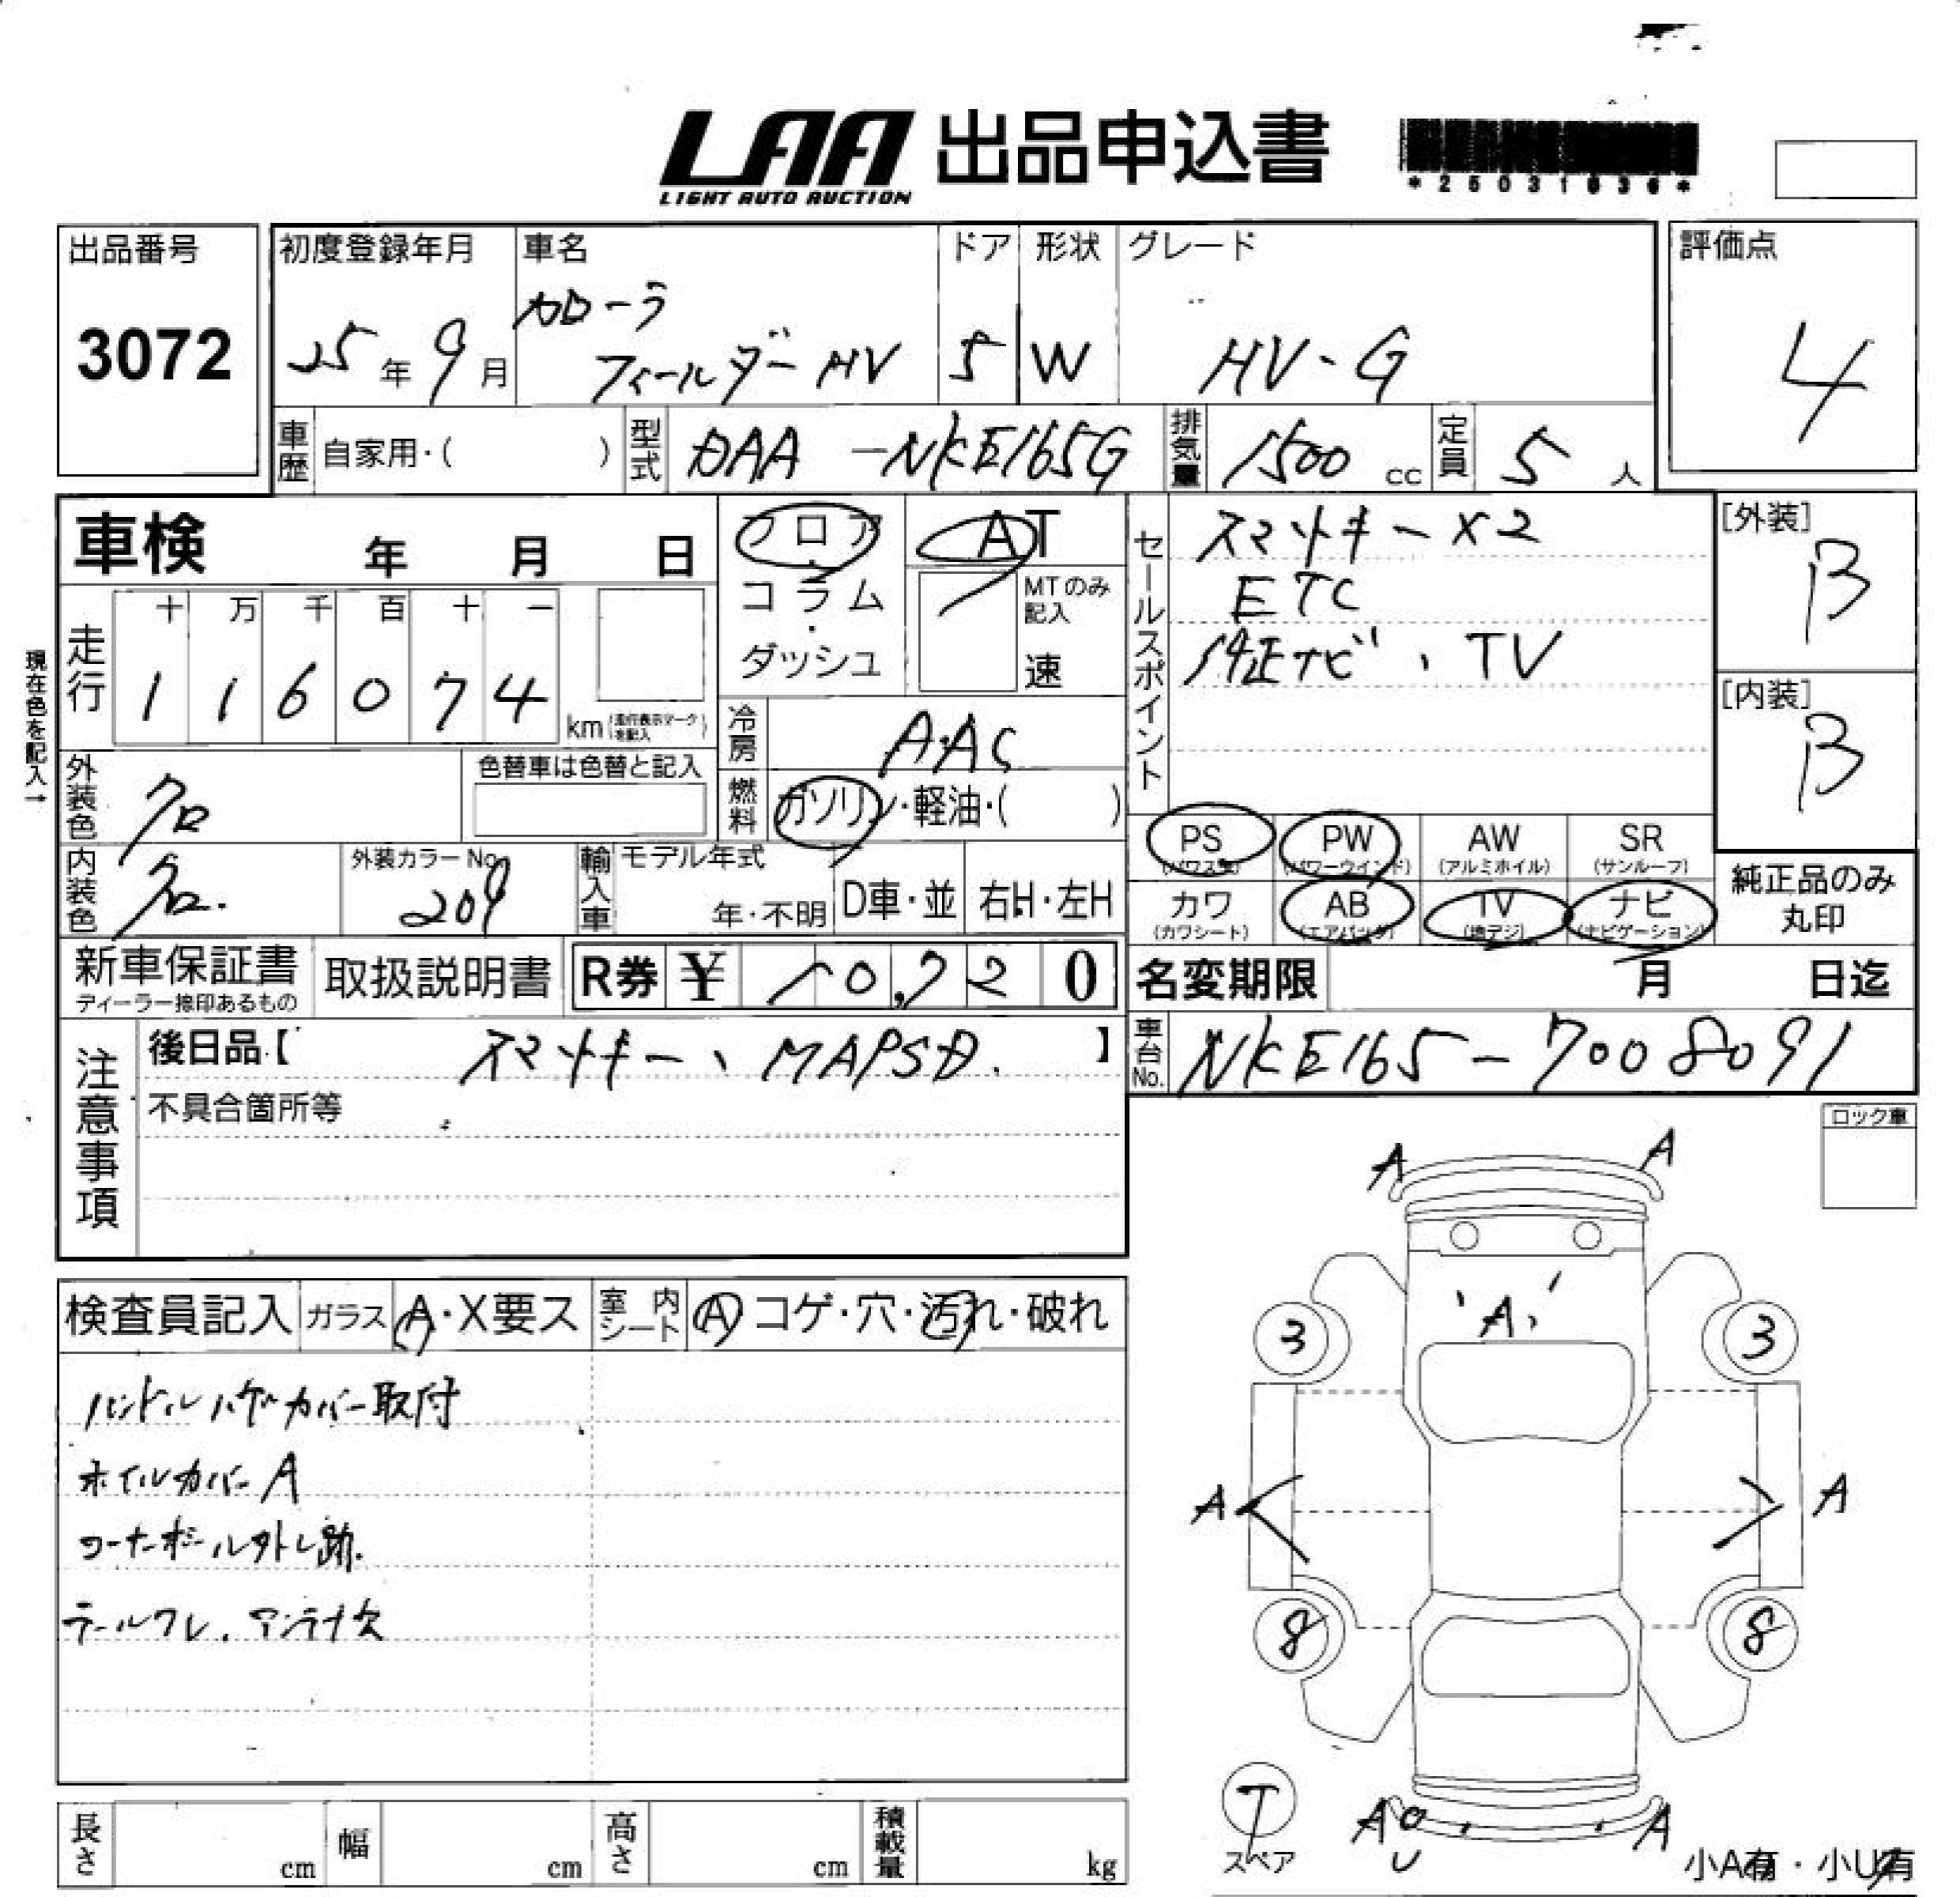 LAA 出品申込書
LIGHT AUTO AUCTION
出品番号
3072
初度登録年月
25年 9月
車名
カローラ
フィールダー HV
ドア
5
形状
W
グレード
HV-G
評価点
4
車歴 自家用・( )
型式 DAA -NKE165G
排気量 1500 cc
定員 5 人
車検 年 月 日
フロア
コラム
・
ダッシュ
AT
MTのみ
記入
速
セールスポイント
スマートキー X2
ETC
純正ナビ、TV
[外装]
B
[内装]
B
現在色を記入→
走行
十 万 千 百 十 一
1 1 6 0 7 4
km (走行表示マークを記入)
冷房 AAC
燃料 ガソリン・軽油・( )
外装色 クロ
色替車は色替と記入
内装色 クロ.
外装カラーNo.
209
輸入車
モデル年式
年・不明
D車・並
右H・左H
PS
(パワステ)
PW
(パワーウインド)
AW
(アルミホイル)
SR
(サンルーフ)
カワ
(カワシート)
AB
(エアバック)
TV
(地デジ)
ナビ
(ナビゲーション)
純正品のみ
丸印
新車保証書
ディーラー捺印あるもの
取扱説明書
R券 ¥ 10,720
名変期限 月 日迄
車台No. NKE165-7008091
注意事項
後日品【 スマートキー、MAPSD. 】
不具合箇所等
ロック車
検査員記入
ガラス A・X要ス
室内シート A コゲ・穴・汚れ・破れ
ハンドルハゲカバー取付
ホイルカバーA
コーナーポール外し跡.
テールワレ. アンテナ欠
A A
A
3 3
A A
8 8
T
スペア
A U A
小A有・小U有
長さ cm
幅 cm
高さ cm
積載量 kg